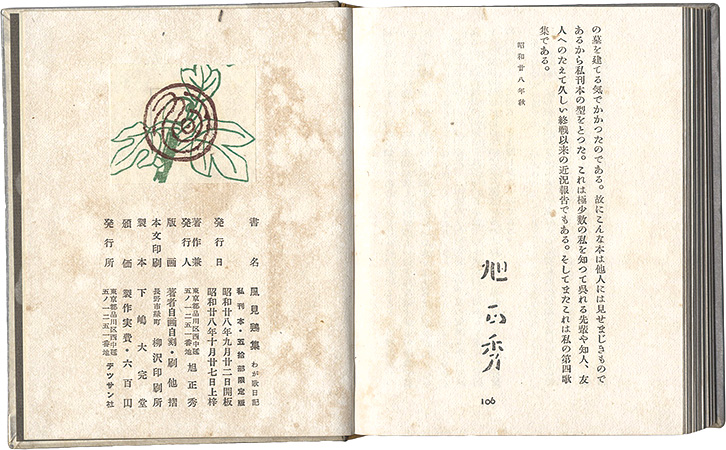 の墓を建てる気でかかつたのである。故にこんな本は他人には見せまじきもので
あるから私刊本の型をとつた。これは極少数の私を知つて呉れる先輩や知人、友
人へのたえて久しい終戦以来の近況報告でもある。そしてまたこれは私の第四歌
集である。
昭和廿八年秋
旭正秀
106
書名 風見鶏集 わが歌日記
私刊本・五拾部限定版
発行日 昭和廿八年九月廿二日開板
昭和廿八年十月廿七日上梓
著作兼発行人 東京都品川区西中延五ノ一二五一番地 旭正秀
版画 著者自画自刻・刷他摺
本文印刷 長野市緑町 柳沢印刷所
製本 下嶋大完堂
頒価 製作実費・六百円
発行所 東京都品川区西中延五ノ一二五一番地 デツサン社